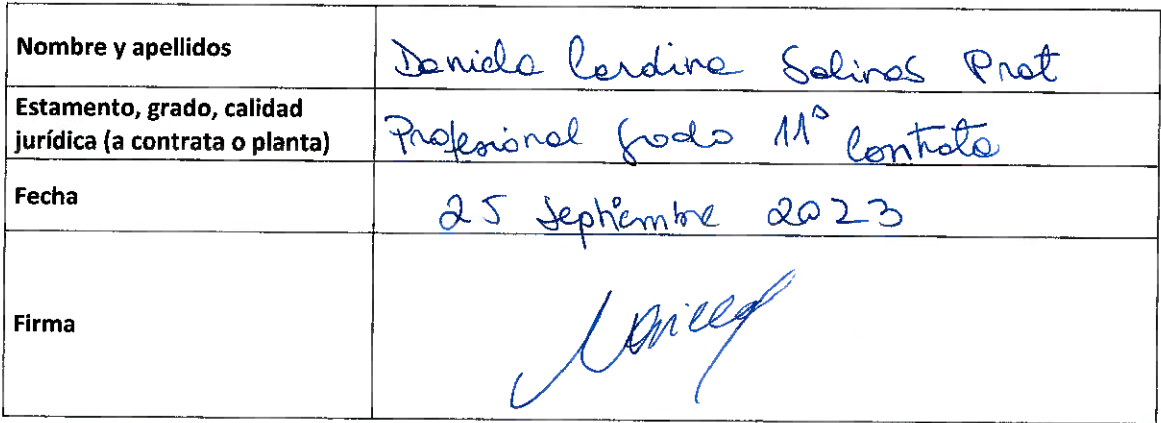 Nombre y apellidos
Daniela Carolina Salinas Prat
Estamento, grado, calidad
jurídica (a contrata o planta)
Profesional grado 11° Contrata
Fecha
25 Septiembre 2023
Firma